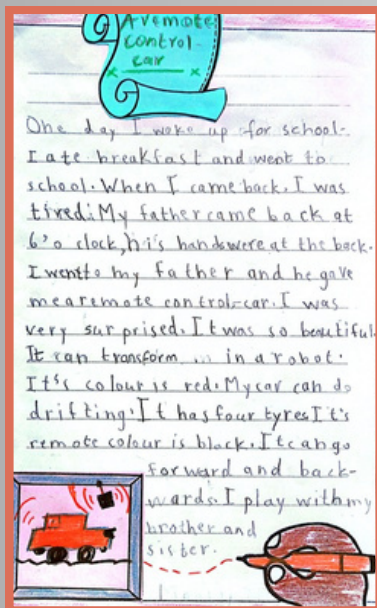 A remote
control-
car
One day I woke up for school.
I ate breakfast and went to
school. When I came back. I was
tired. My father came back at
6'o clock, his hands were at the back.
I went to my father and he gave
me a remote control-car. I was
very surprised. It was so beautiful.
It can transform in a robot.
It's colour is red. My car can do
drifting. It has four tyres It's
remote colour is black. It can go
forward and back-
wards. I play with my
brother and
sister.